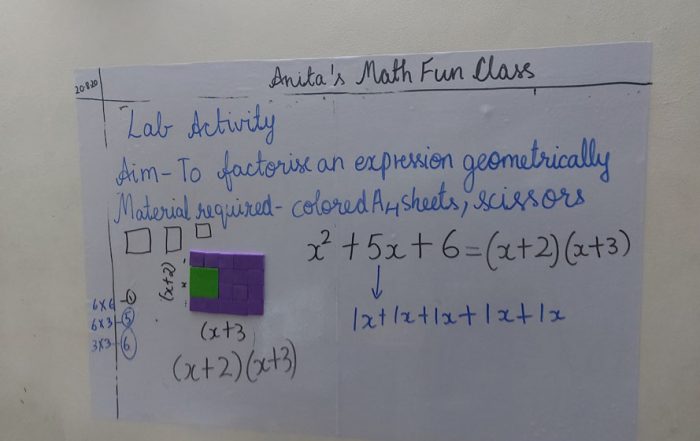 Anita's Math Fun Class
20.8.20
Lab Activity
Aim- To factorise an expression geometrically
Material required- colored A4 sheets, scissors
x² + 5x + 6 = (x+2)(x+3)
(x+2)
x
6x6 - ①
6x3 - ⑤
3x3 - ⑥
1x+1x+1x+1x+1x
(x+3
(x+2)(x+3)